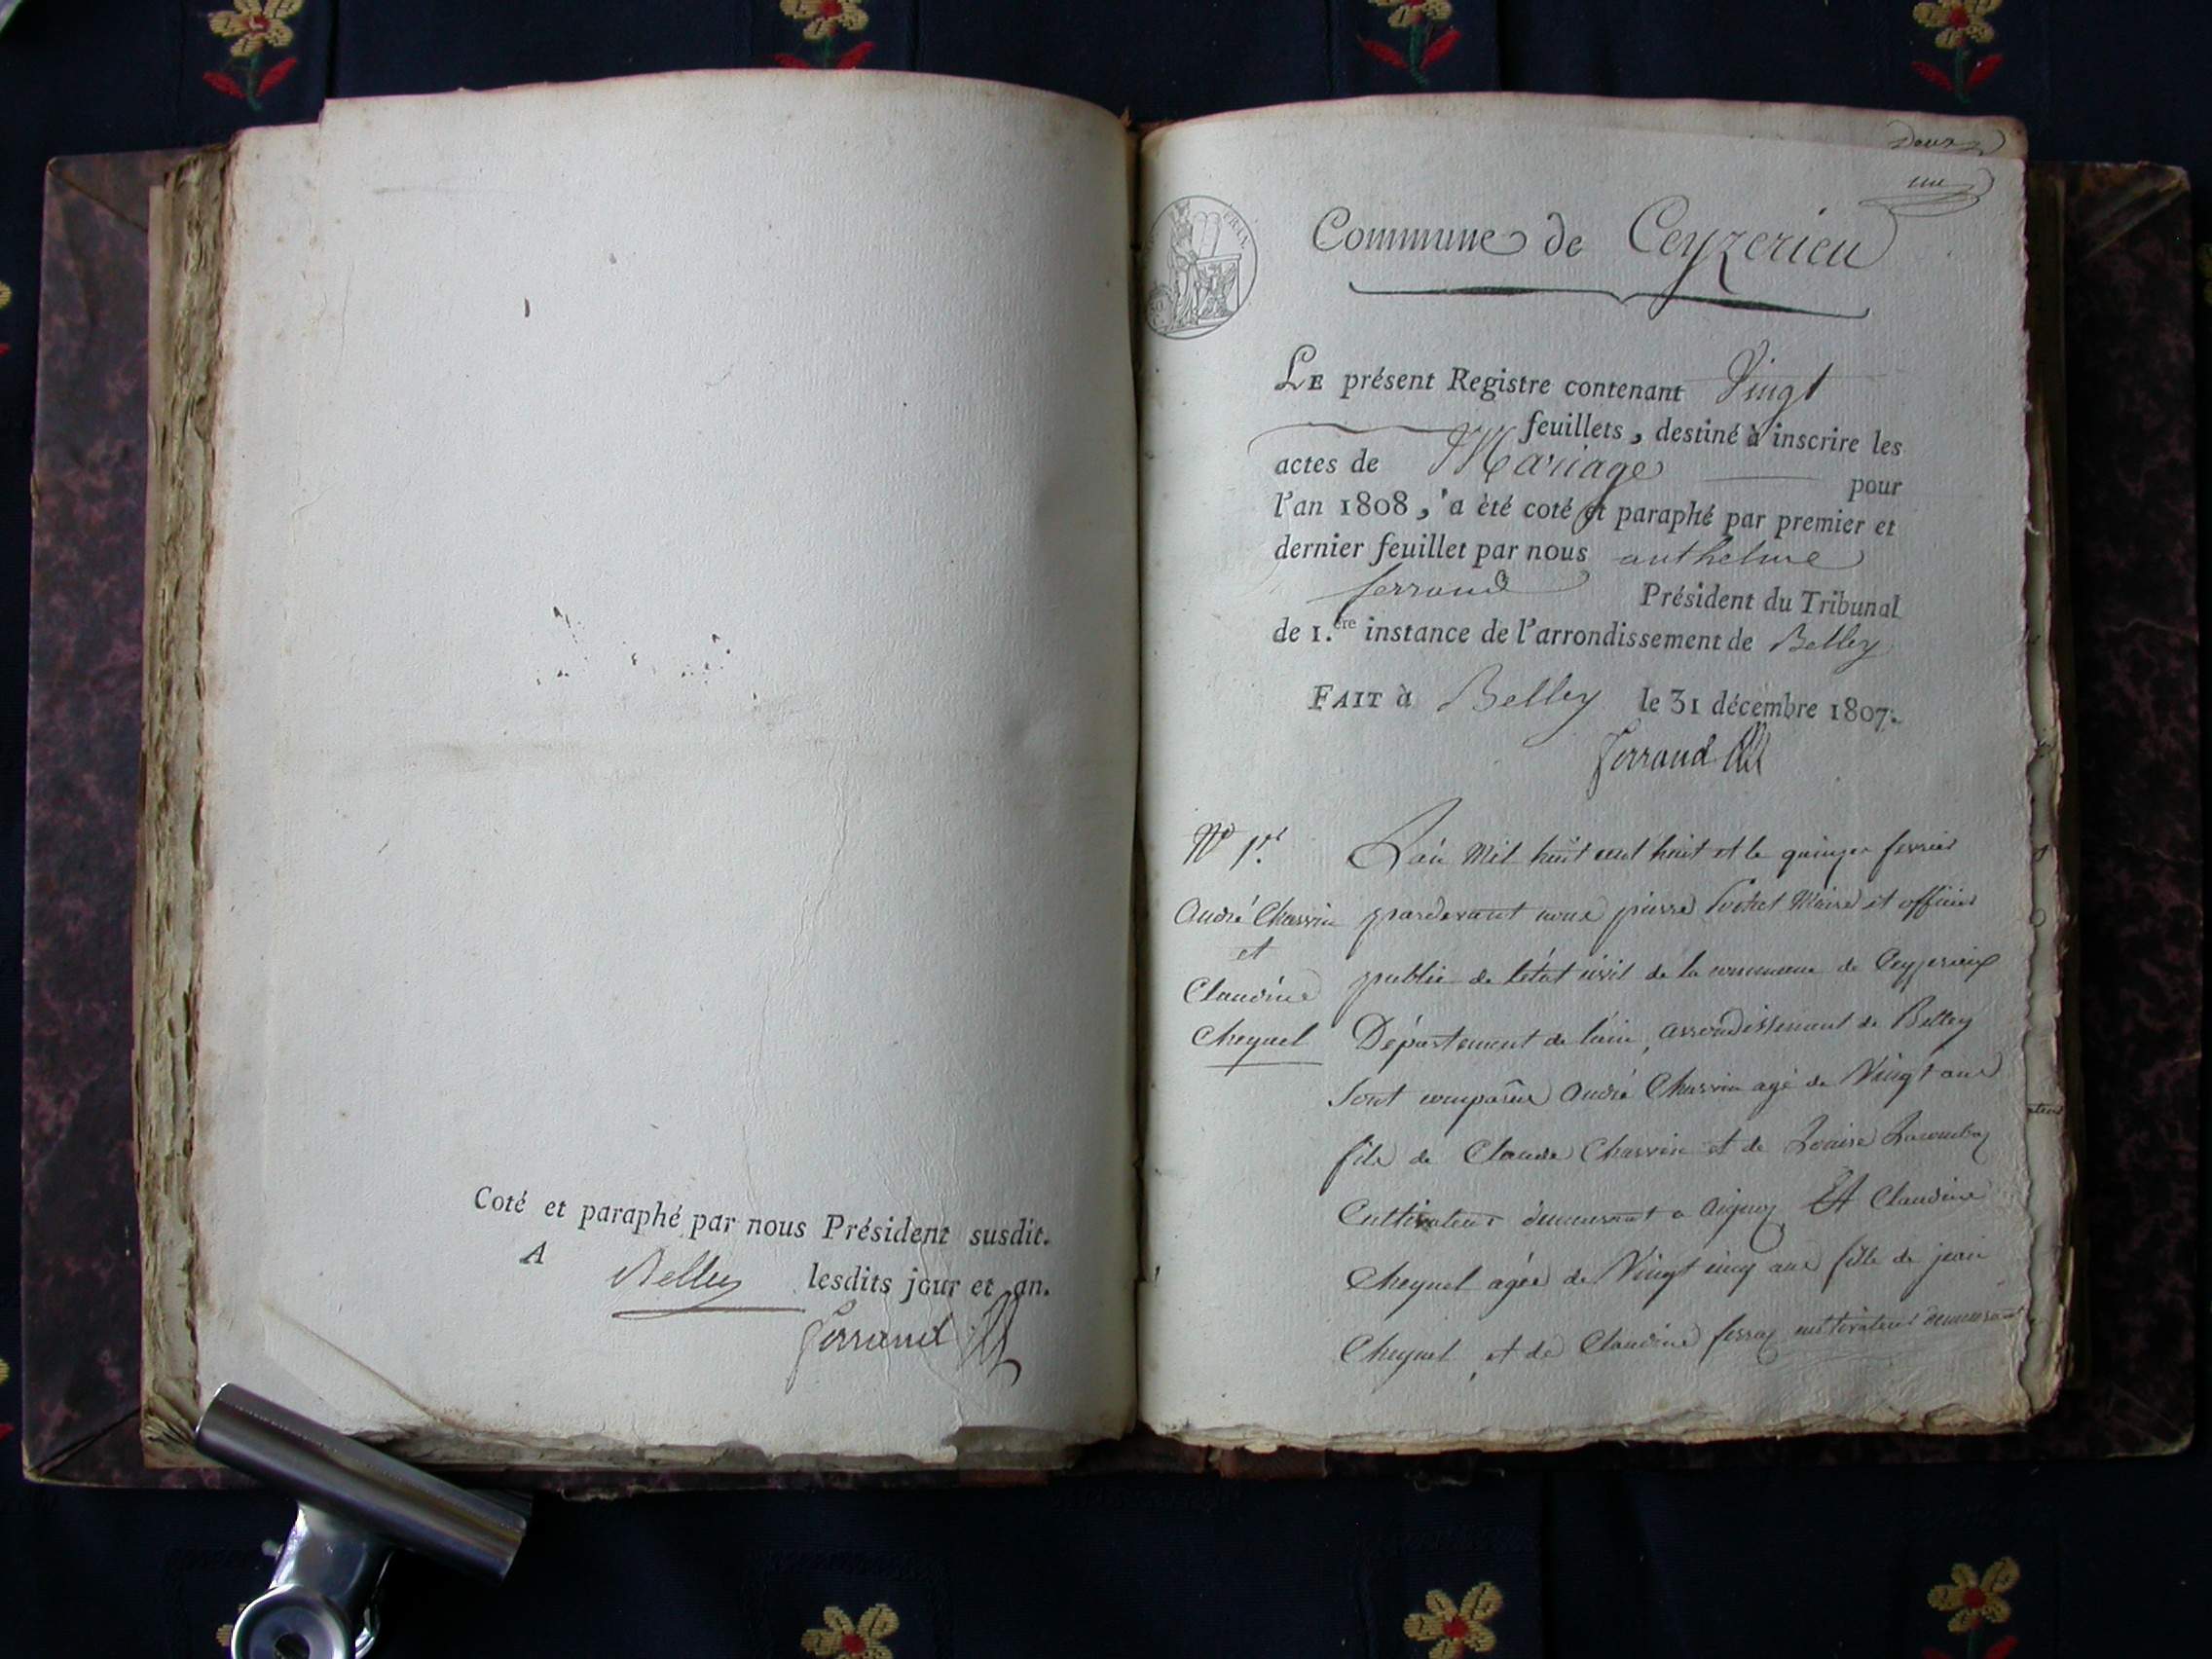 Coté et paraphé par nous Président susdit.
A Belley lesdits jour et an.
Ferrand
Deux
un
Commune de Ceyzerieu
LE présent Registre contenant Vingt
feuillets, destiné à inscrire les
actes de Mariage pour
l'an 1808, a èté coté et paraphé par premier et
dernier feuillet par nous anthelme
ferrand Président du Tribunal
de 1.ère instance de l'arrondissement de Belley
FAIT à Belley le 31 décembre 1807.
Ferrand
N° 1er
André Chavvin
et
Claudine
Cheynel
L'an Mil huit cent huit et le quinze fevrier
pardevant nous pierre Maire et officier
public de l'état civil de la commune de Ceyzerieux
Département de l'ain, arrondissement de Belley
sont comparus André Chavvin agé de Vingt ans
fils de Claude Chavvin et de Louise Lacombaz
Cultivateur demeurant a aignoz Et Claudine
Cheynel agée de Vingt cinq ans fille de jean
Cheynel, et de Claudine cultivateur demeurant